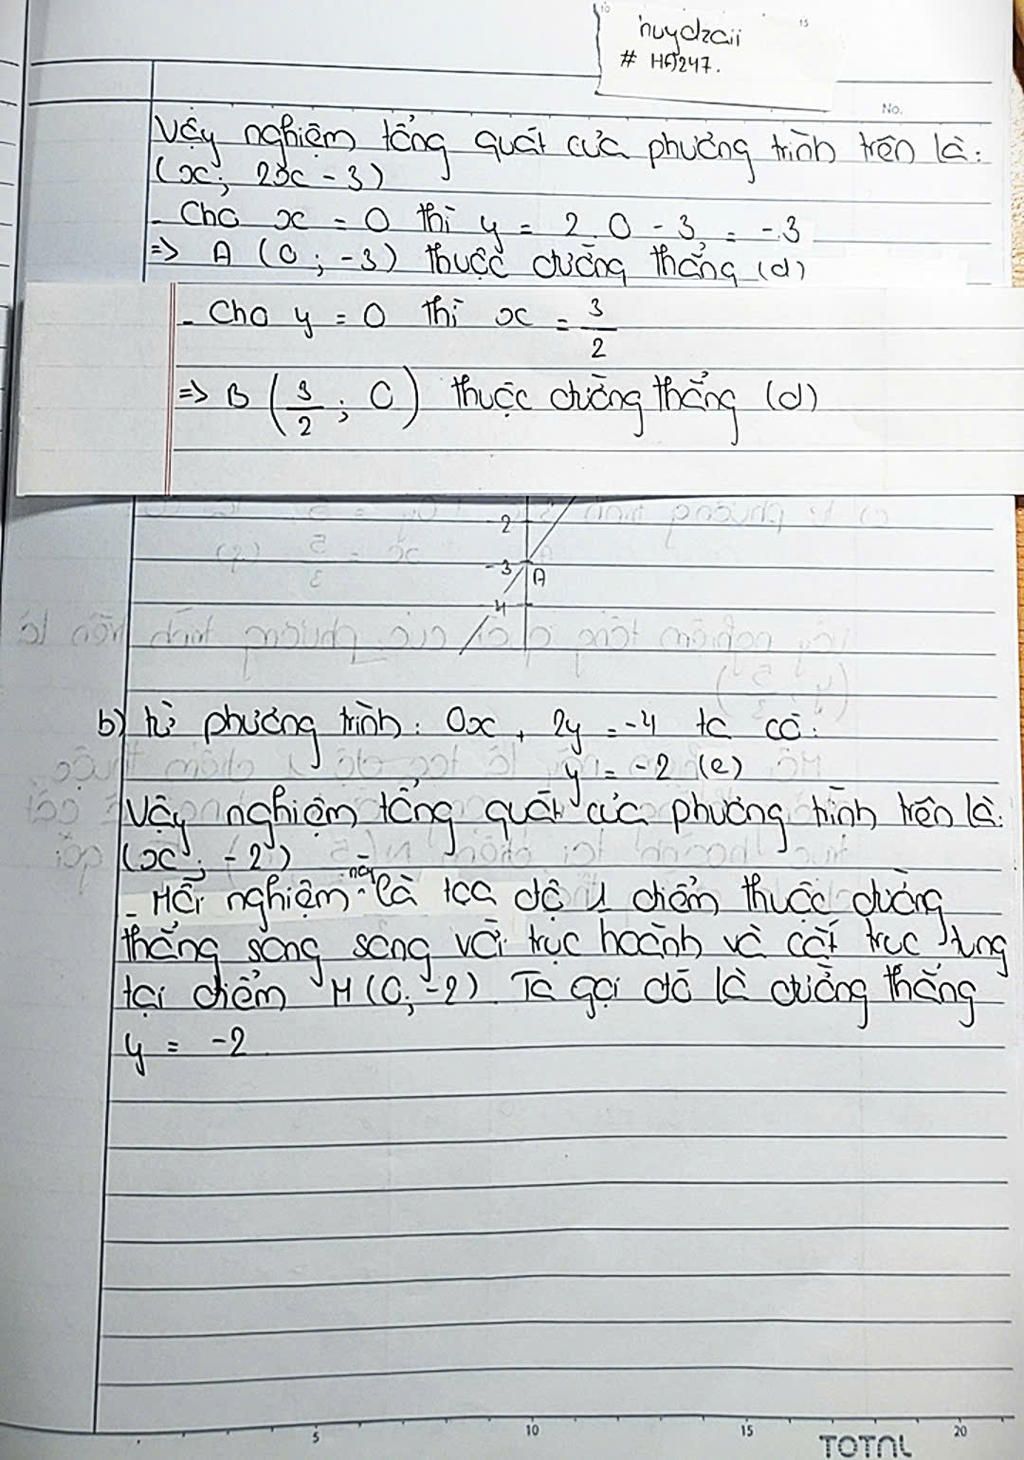 huydzaii
# HĐ247.
No.
Vậy nghiệm tổng quát của phương trình trên là:
(x; 2x - 3)
- Cho x = 0 thì y = 2.0 - 3 = -3
=> A (0; -3) thuộc đường thẳng (d)
- Cho y = 0 thì x = 3/2
=> B (3/2; 0) thuộc đường thẳng (d)
-2
-3
A
-4
b) từ phương trình: 0x + 2y = -4 ta có:
y = -2 (e)
Vậy nghiệm tổng quát của phương trình trên là:
(x; -2)
- Mỗi nghiệm này là tọa độ 1 điểm thuộc đường
thẳng song song với trục hoành và cắt trục tung
tại điểm M (0; -2). Ta gọi đó là đường thẳng
y = -2
5 10 15 20
TOTAL